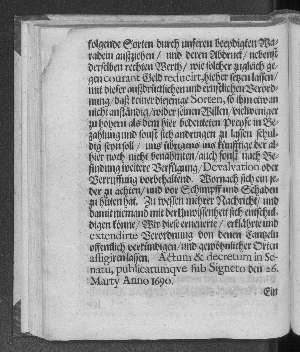 folgende Sorten durch unseren beeydigten Wa-
radein aufziehen / und deren Abdruck / nebenst
derselben rechten Werth / wie solcher zugleich ge-
gen courant Geld reducirt, hieher setzen lassen /
mit dieser ausdrücklichen und ernstlichen Verord-
nung / daß keiner diejenige Sorten, so ihm etwan
nicht anständig / wider seinen Willen / vielweniger
zu höhern als dem hier bedeuteten Preise in Be-
zahlung und sonst sich andringen zu lassen schul-
dig seyn soll / und übrigens uns künfftige der al-
hier noch nicht benahmten / auch sonst nach Be-
findung weitere Verfügung / Devalvation oder
Verruffung vorbehaltend. Wornach sich ein je-
der zu achten / und vor Schimpff und Schaden
zu hüten hat. Zu wessen mehrer Nachricht / und
damit niemand mit der Unwissenheit sich entschul-
digen könne / Wir diese erneuerte / erklährte und
extendirte Verordnung von denen Cantzeln
öffentlich verkündigen / und gewöhnlicher Orten
affigiren lassen. Actum & decretum in Se-
natu, publicatumqve sub Signeto den 26.
Marty Anno 1690.
Ein